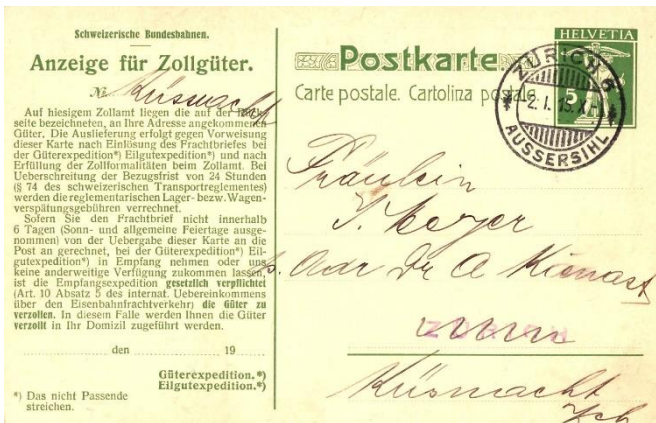 Schweizerische Bundesbahnen.
Anzeige für Zollgüter.
No Küsnacht
Auf hiesigem Zollamt liegen die auf der Rück-
seite bezeichneten, an Ihre Adresse angekommenen
Güter. Die Auslieferung erfolgt gegen Vorweisung
dieser Karte nach Einlösung des Frachtbriefes bei
der Güterexpedition*) Eilgutexpedition*) und nach
Erfüllung der Zollformalitäten beim Zollamt. Bei
Ueberschreitung der Bezugsfrist von 24 Stunden
(§ 74 des schweizerischen Transportreglementes)
werden die reglementarischen Lager- bezw. Wagen-
verspätungsgebühren verrechnet.
Sofern Sie den Frachtbrief nicht innerhalb
6 Tagen (Sonn- und allgemeine Feiertage ausge-
nommen) von der Uebergabe dieser Karte an die
Post an gerechnet, bei der Güterexpedition*) Eil-
gutexpedition*) in Empfang nehmen oder uns
keine anderweitige Verfügung zukommen lassen,
ist die Empfangsexpedition gesetzlich verpflichtet
(Art. 10 Absatz 5 des internat. Uebereinkommens
über den Eisenbahnfrachtverkehr) die Güter zu
verzollen. In diesem Falle werden Ihnen die Güter
verzollt in Ihr Domizil zugeführt werden.
den 19
Güterexpedition.*)
Eilgutexpedition.*)
*) Das nicht Passende
streichen.
Postkarte
Carte postale. Cartolina postale
HELVETIA
5
ZÜRICH 6
AUSSERSIHL
Fräulein
Meyer
Adr Dr A Kienast
ZÜRICH
Küsnacht
Zch